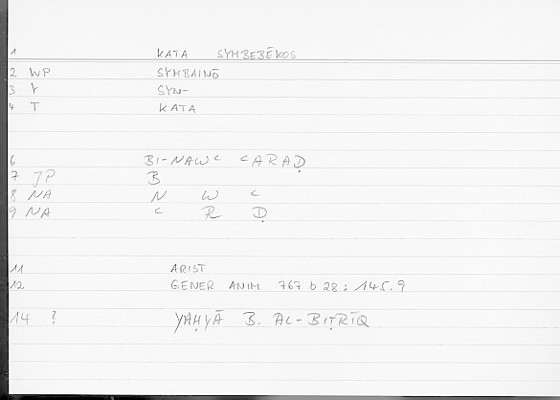 1 KATA SYMBEBĒKOS
2 WP SYMBAINŌ
3 Y SYN-
4 T KATA
6 BI-NAWᶜ ᶜARAḌ
7 JP B
8 NA N W ᶜ
9 NA ᶜ R Ḍ
11 ARIST
12 GENER ANIM 767 b 28 : 145.9
14 ? YAḤYĀ B. AL-BIṬRĪQ